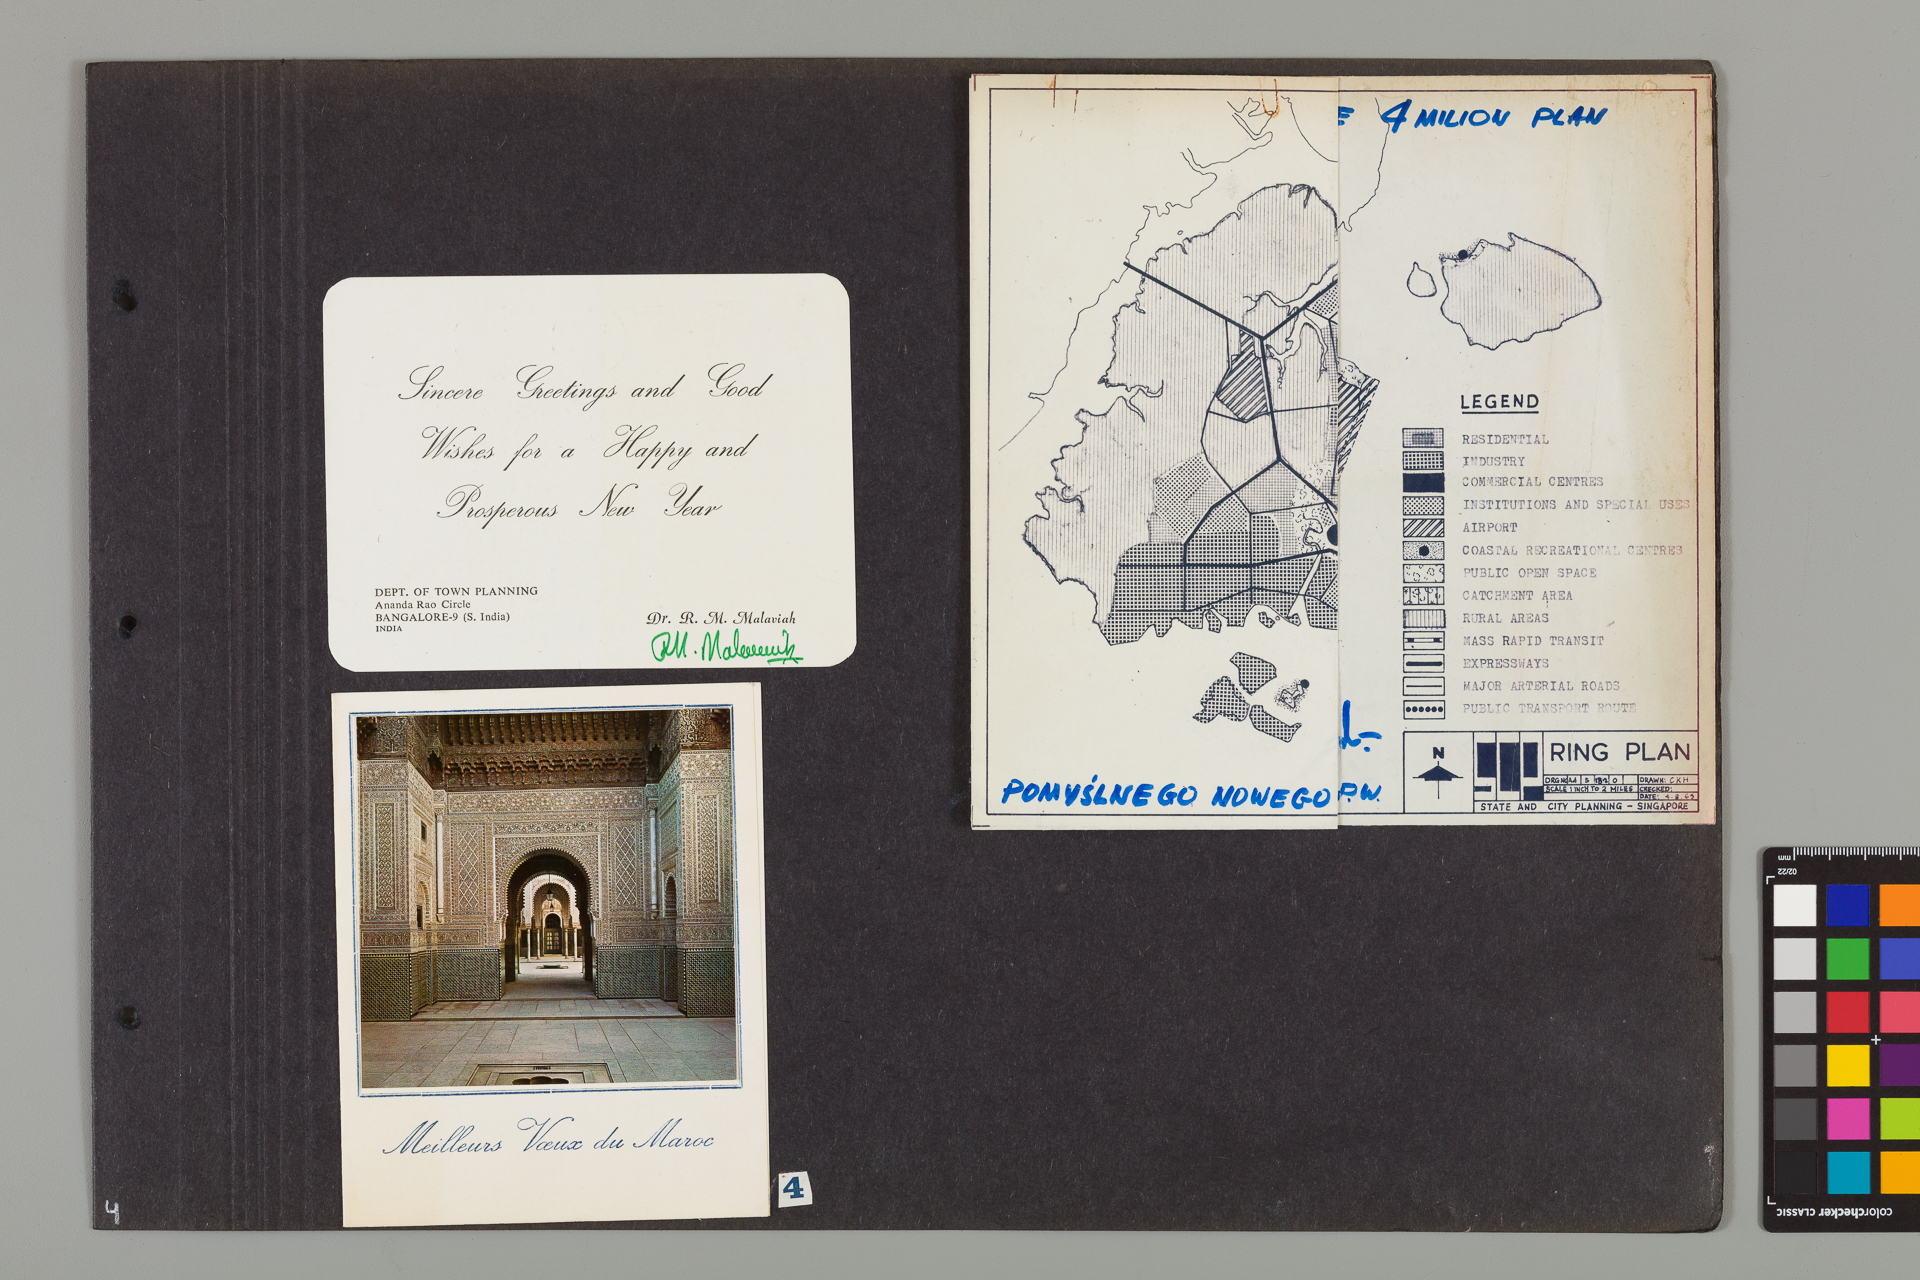 Sincere Greetings and Good
Wishes for a Happy and
Prosperous New Year
DEPT. OF TOWN PLANNING
Ananda Rao Circle
BANGALORE-9 (S. India)
INDIA
Dr. R. M. Malaviah
Meilleurs Vœux du Maroc
4
4
E 4 MILION PLAN
LEGEND
RESIDENTIAL
INDUSTRY
COMMERCIAL CENTRES
INSTITUTIONS AND SPECIAL USES
AIRPORT
COASTAL RECREATIONAL CENTRES
PUBLIC OPEN SPACE
CATCHMENT AREA
RURAL AREAS
MASS RAPID TRANSIT
EXPRESSWAYS
MAJOR ARTERIAL ROADS
PUBLIC TRANSPORT ROUTE
POMYŚLNEGO NOWEGO P.W.
N
RING PLAN
SCALE 1 INCH TO 2 MILES
DRAWN: CKH
CHECKED:
DATE:
STATE AND CITY PLANNING – SINGAPORE
mm
02/22
colorchecker CLASSIC